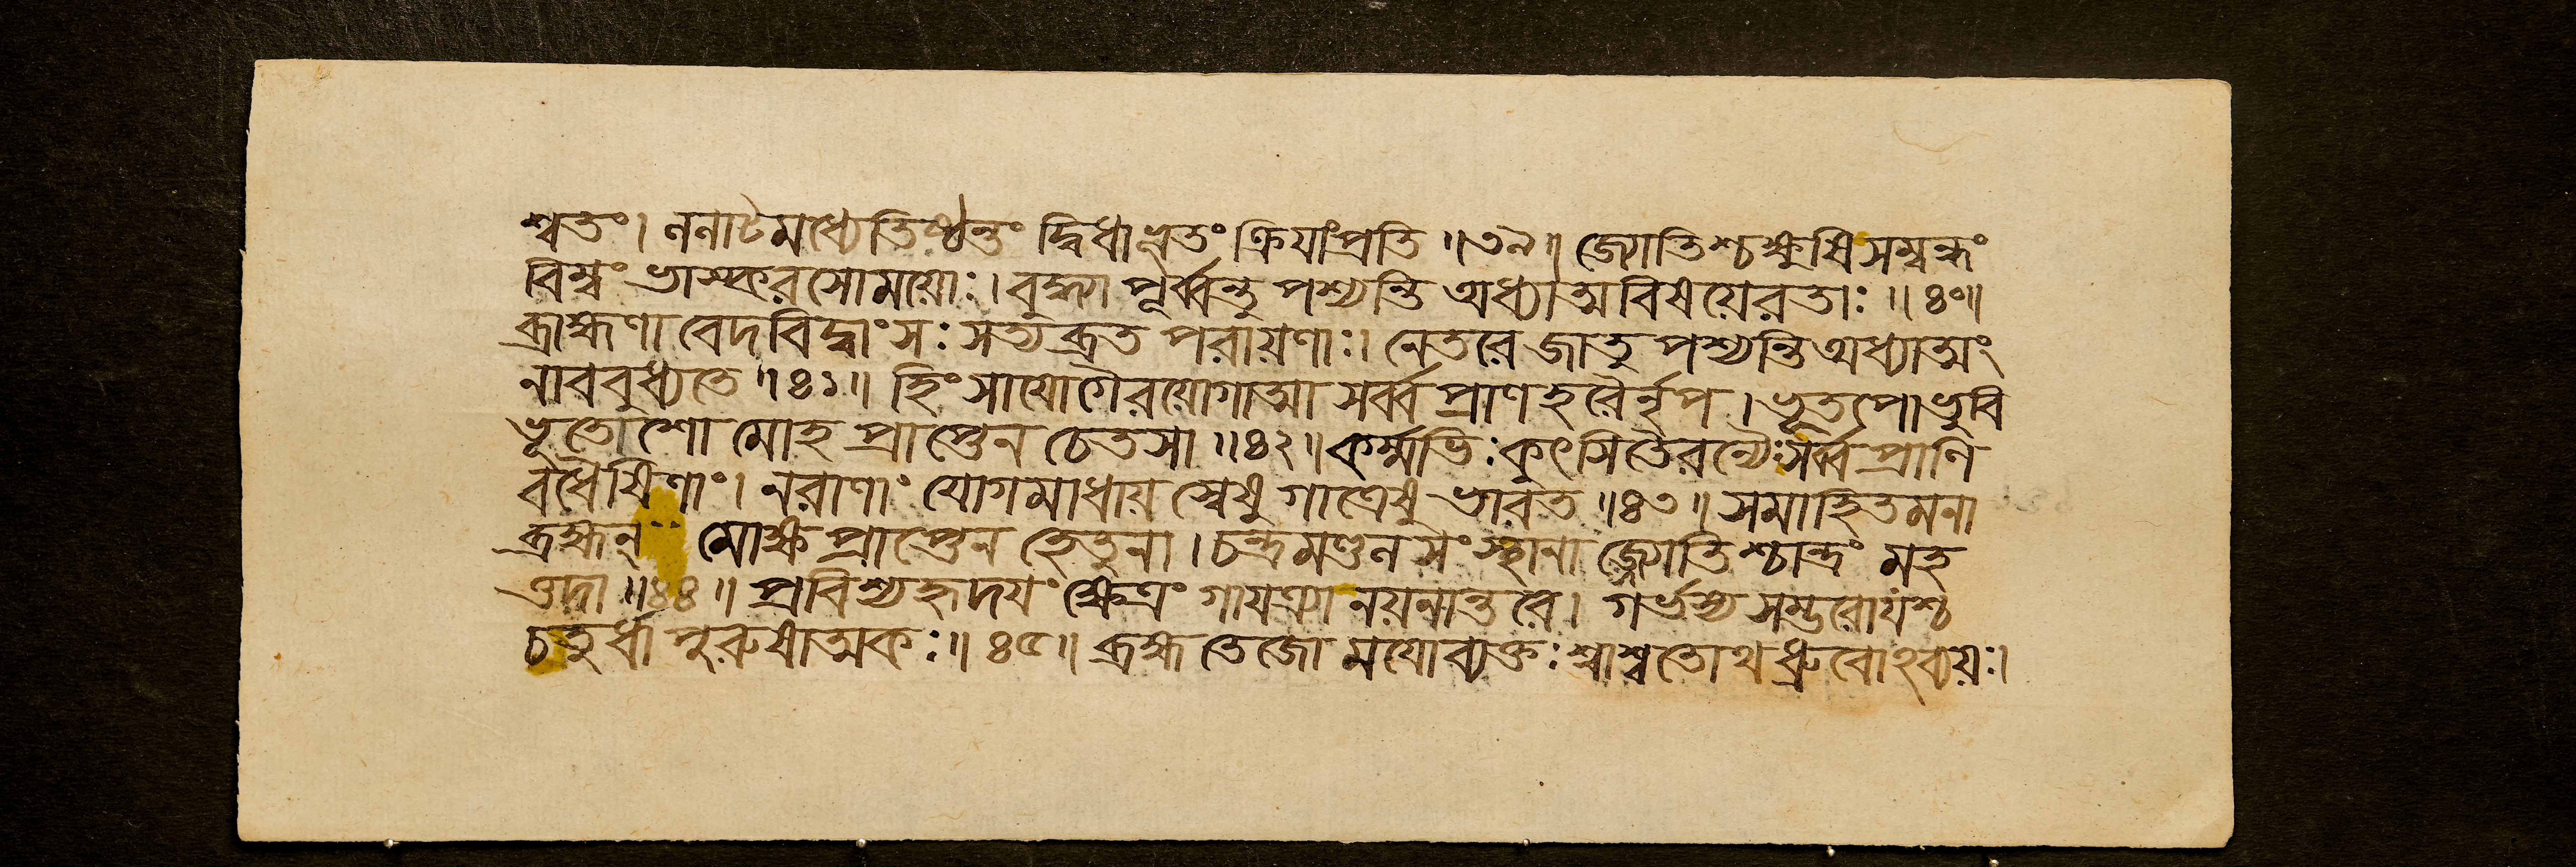 শ্বতং। ললাটমধ্যেতিষ্ঠন্তং দ্বিধাভূতং ক্রিযাংপ্রতি ॥৩৯॥ জ্যোতিশ্চক্ষুষিসম্বদ্ধং
বিম্বং ভাস্করসোময়োঃ। বুদ্ধ্যা পূর্ব্বন্তু পশ্যন্তি অধ্যাত্মবিষয়েরতাঃ ॥৪০॥
ব্রাহ্মণা বেদবিদ্বাংসঃ সত্যব্রত পরায়ণাঃ। নেতরে জাতু পশ্যন্তি অধ্যাত্মং
নাববুধ্যতে ॥৪১॥ হিংসাযোগৈরযোগাত্মা সর্ব্বপ্রাণহরৈর্নৃপ। ভূতপোভুবি
ভূতেশো মোহ প্রাপ্তেন চেতসা ॥৪২॥ কর্ম্মভিঃ কুৎসিতৈরন্যৈঃ সর্ব্বপ্রাণি
বধৈষিণাং। নরাণাং যোগমাধায় স্বেষু গাত্রেষু ভারত ॥৪৩॥ সমাহিতমনা
ব্রহ্মন্ মোক্ষপ্রাপ্তেন হেতুনা। চন্দ্রমণ্ডলসংস্থানা জ্জ্যোতিশ্চান্দ্রং মহ
ত্তদা ॥৪৪॥ প্রবিশ্যহৃদযং ক্ষেত্রং গাযত্র্যা নয়নান্তরে। গর্ভস্য সম্ভবোযশ্চ
চতুর্ধা পুরুষাত্মকঃ ॥৪৫॥ ব্রহ্মতেজো মযোব্যক্তঃ শ্বাশ্বতোথ ধ্রুবোঽব্যয়ঃ।